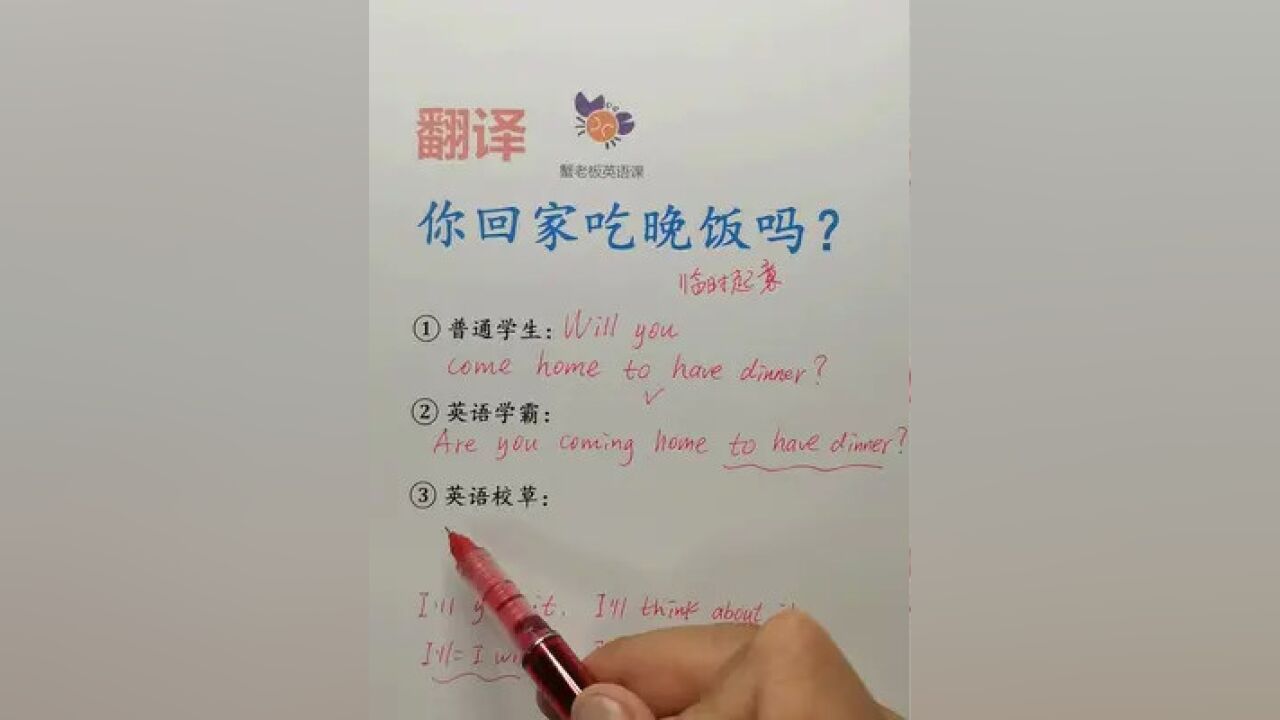 翻译
蟹老板英语课
你回家吃晚饭吗？
临时起意
① 普通学生: Will you
come home to have dinner?
② 英语学霸:
Are you coming home to have dinner?
③ 英语校草:
I'll it. I'll think about
I'll = I